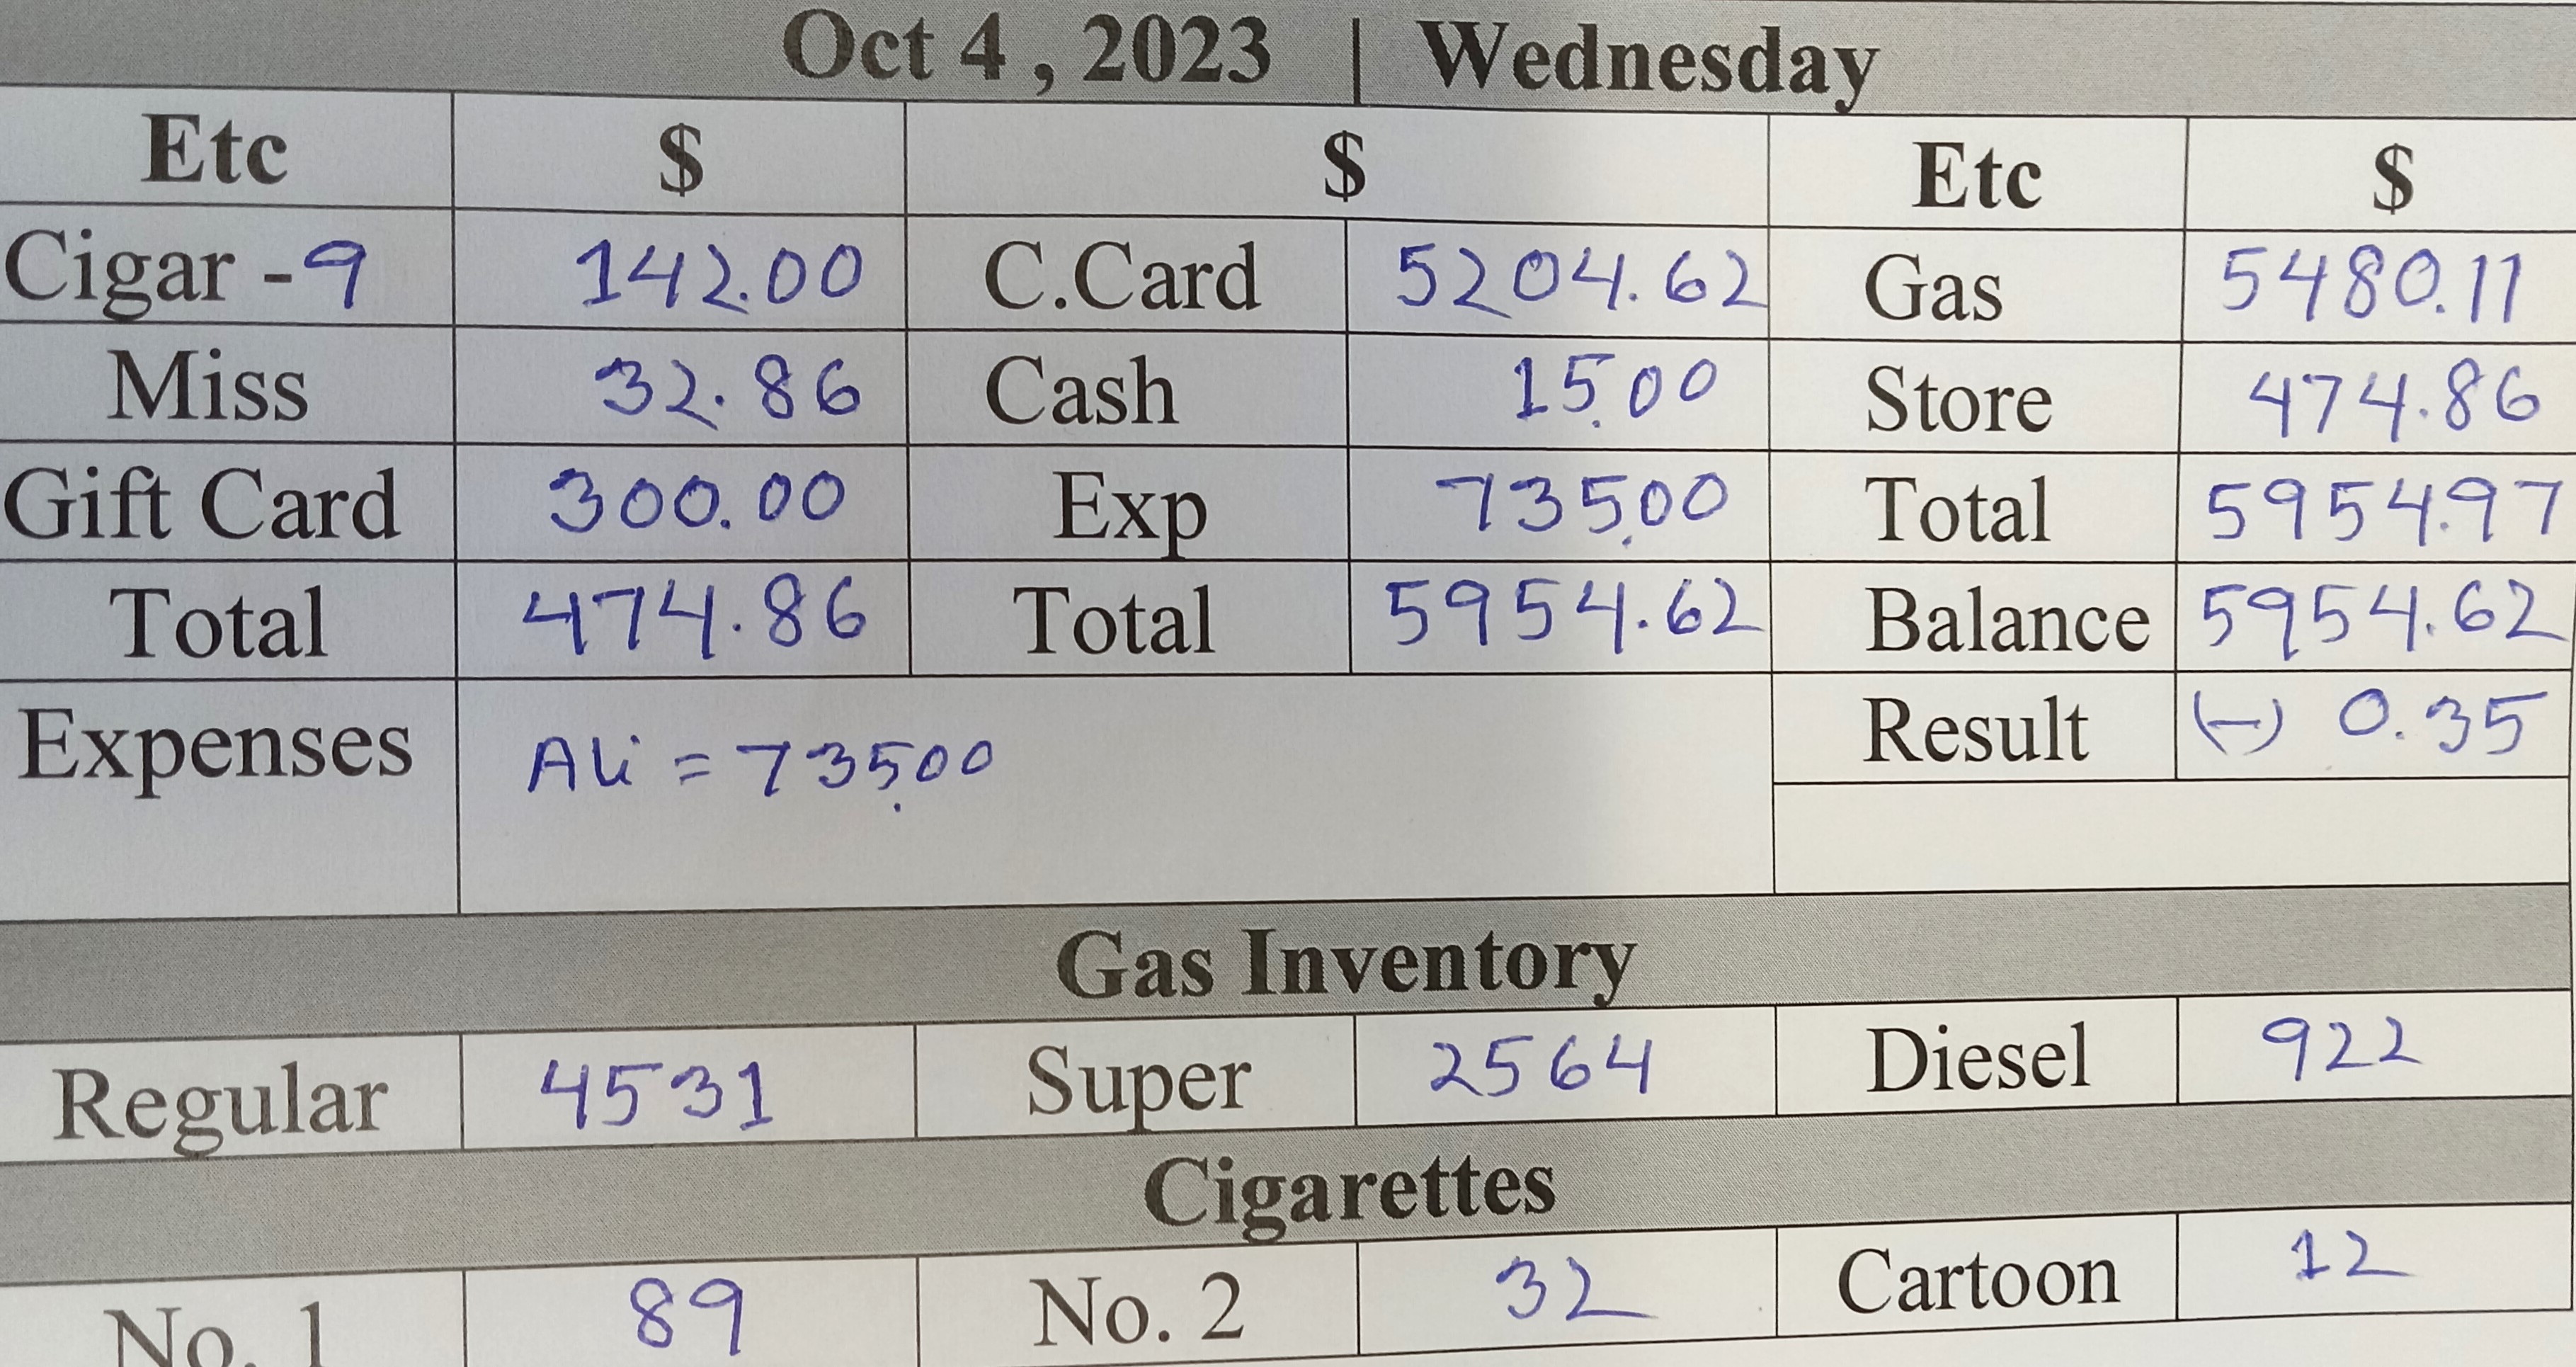 Oct 4 , 2023 | Wednesday
Etc $ $ Etc $
Cigar - 9 142.00 C.Card 5204.62 Gas 5480.11
Miss 32.86 Cash 15.00 Store 474.86
Gift Card 300.00 Exp 735.00 Total 5954.97
Total 474.86 Total 5954.62 Balance 5954.62
Expenses Ali = 735.00 Result (-) 0.35
Gas Inventory
Regular 4531 Super 2564 Diesel 922
Cigarettes
No. 1 89 No. 2 32 Cartoon 12